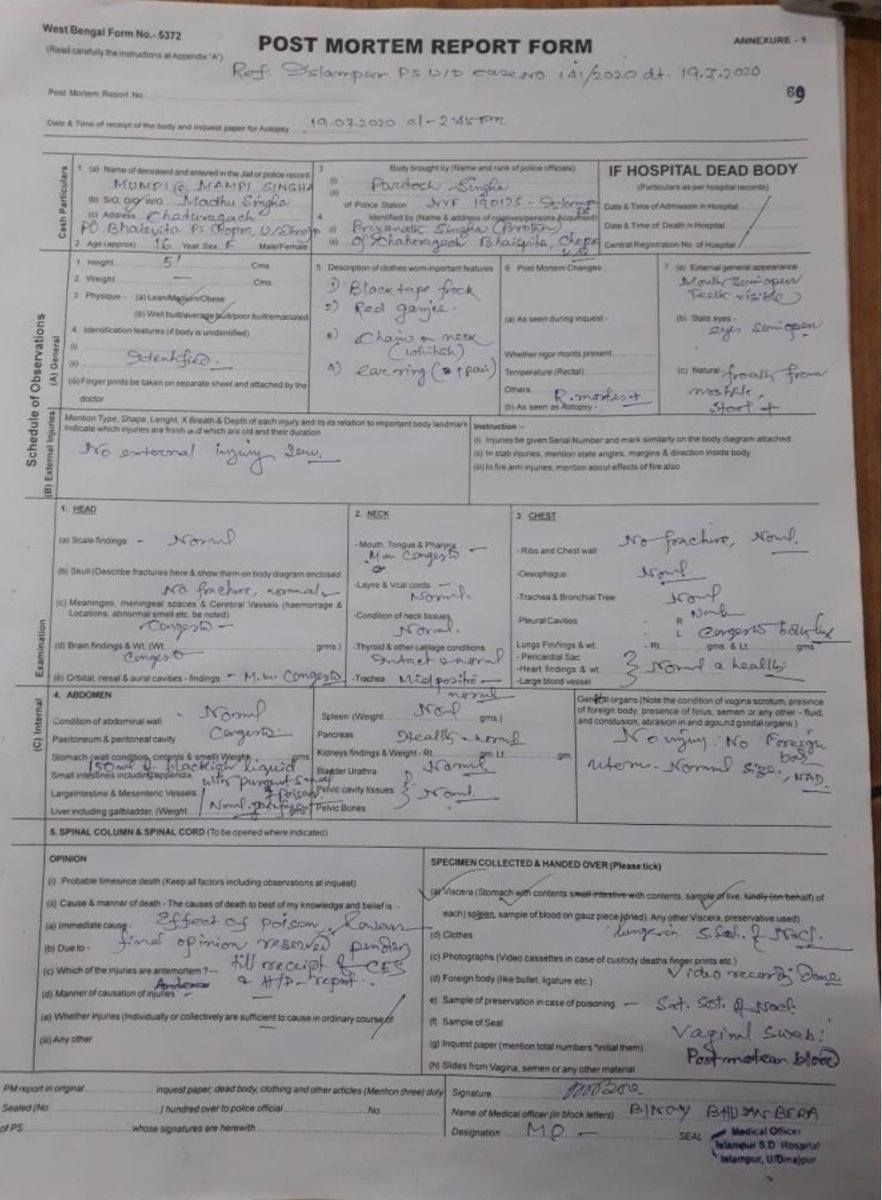 West Bengal Form No.- 5372
(Read carefully the instructions at Appendix "A")
POST MORTEM REPORT FORM
ANNEXURE - 1
Ref: Islampur PS U/D case No 141/2020 dt. 19.7.2020
69
Post Mortem Report No
Date & Time of receipt of the body and Inquest paper for Autopsy 19.07.2020 at - 2:45 pm.
Cash Particulars
1. (a) Name of deceased and entered in the Jail or police record
MUMPI @ MAMPI SINGHA
(b) S/O D/O W/O Madhu Singha
(c) Address Chaturagach
PO Bhaispita PS Chopra, U/Dinajpur
2. Age (approx) 16 Year Sex F Male/Female
3 Body brought by (Name and rank of police officials)
(i) Paritosh Singha
(ii) of Police Station NVF 190125 - Islampur PS
4. Identified by (Name & address of relatives/persons Acquainted)
(i) Priyanath Singha
(ii) Of Bhaispita, Chopra
IF HOSPITAL DEAD BODY
(Particulars as per hospital records)
Date & Time of Admission in Hospital
Date & Time of Death in Hospital
Central Registration No. of Hospital
Schedule of Observations
(A) General
1. Height 5' Cms.
2. Weight — Cms.
3. Physique - (a) Lean/Medium/Obese
(b) Well built/average built/poor built/emaciated
4. Identification features (if body is unidentified)
(i)
(ii) Identified.
(iii) Finger prints be taken on separate sheet and attached by the
doctor
5 Description of clothes worn-important features
1) Black tape frock
2) Red ganjee
3) Chain on neck
(whitish)
4) earring (1 pair)
6. Post Mortem Changes
(a) As seen during inquest -
Whether rigor monts present
Temperature (Rectal)
Others R. mortes +
(b) As seen as Autopsy -
7 (a) External general appearance
Mouth semi open
Teeth visible
(b) State eyes -
eyes semi open
(c) Natural froath from
nostrile,
(B) External Injuries
Mention Type, Shape, Lenght, X Breath & Depth of each injury and its its relation to important body landmark
Indicate which injuries are fresh and which are old and their duration
No external injury seen.
Instruction :-
(i) Injuries be given Serial Number and mark similarly on the body diagram attached.
(ii) In stab injuries, mention state angles, margins & direction inside body.
(iii) In fire arm injuries, mention about effects of fire also
(C) Internal Examination
1. HEAD
(a) Scale findings - Normal
(b) Skull (Describe fractures here & show them on body diagram enclosed.
No fracture, normal
(c) Meaninges, meningeal spaces & Cerebral Vasseis (haemorrage &
Locations, abnormal smell etc. be noted)
Congested -
(d) Brain findings & Wt. (Wt. grms.)
Congested
(e) Orbital, nesal & aural cavities - findings - M.m Congested
2. NECK
-Mouth, Tongue & Pharynx
M.m Congested -
-Layns & Vcal cords -
Normal.
-Condition of neck tissues
Normal.
-Thyroid & other catilage conditions
Intact & normal
-Trachea Midposition
normal
3. CHEST
- Ribs and Chest wall No fracture, Normal.
-Oesophagus Normal
-Trachea & Bronchial Tree Normal
-Pleural Cavities - R
L Congested both
Lungs Findings & wt. - Rt. gms & Lt. gms
- Pericardial Sac
- Heart findings & wt. Normal & healthy
-Large blood vessel
4. ABDOMEN
Condition of abdominal wall. - Normal
Paeitoneum & pentoneal cavity Congested
Stomach (wall condition, cintents & smell) Weight gms
150 ml of blackish liquid
Small intestines including appendix. with pungent smell
LargeIntestine & Mesenteric Vessels of Poison
Liver including gallbladder, (Weight gms)
Spleen (Weight Normal gms.)
Pancreas Healthy - normal
Kidneys findings & Weight - Rt gm. Lt gm.
Bladder Urathra Normal
Pelvic cavity tissues Normal.
Pelvic Bones
Genital organs (Note the condition of vagina scrotum, presince
of foreign body, presence of fetus, semen or any other - fluid,
and constusion, abrasion in and agound ganital organs.)
No injury. No Foreign
body
uterus - Normal size,
NAD.
5. SPINAL COLUMN & SPINAL CORD (To be opened where indicated)
OPINION
(i) Probable timesince death (Keep all factors including observations at inquest)
(ii) Cause & manner of death - The causes of death to best of my knowledge and belief is -
(a) Immediate cause - Effect of poison, however
(b) Due to - final opinion reserved pending
(c) Which of the injuries are antemortem ? — till receipt of CES
& H/P - report.
(d) Manner of causation of injuries -
(e) Whether injuries (Individually or collectively are sufficient to cause in ordinary course of
(iii) Any other
SPECIMEN COLLECTED & HANDED OVER (Please tick)
(a) Viscera (Stomach with contents small intestive with contents, sample of live, kindly (on behalf) of
each) spleen, sample of blood on gauz piece (dried). Any other Viscera, preservative used).
(d) Clothes
(c) Photographs (Video cassettes in case of custody deaths finger prints etc.)
(d) Foreign body (like bullet, ligature etc.) Video recording Done
e) Sample of preservation in case of poisoning - Sat. Sol. of Nacl.
(f) Sample of Seal
Vaginal Swab:
(g) Inquest paper (mention total numbers *initial them)
Postmotean blood
(h) Slides from Vagina, semen or any other material
PM report in original inquest paper, dead body, clothing and other articles (Mention three) duly
Sealed (No ) hundred over to police official No
of PS whose signatures are herewith
Signature
Name of Medical officer (in block letters) BINOY BHUSAN BERA
Designation MO -
SEAL
Medical Officer
Islampur S.D Hospital
Islampur, U/Dinajpur